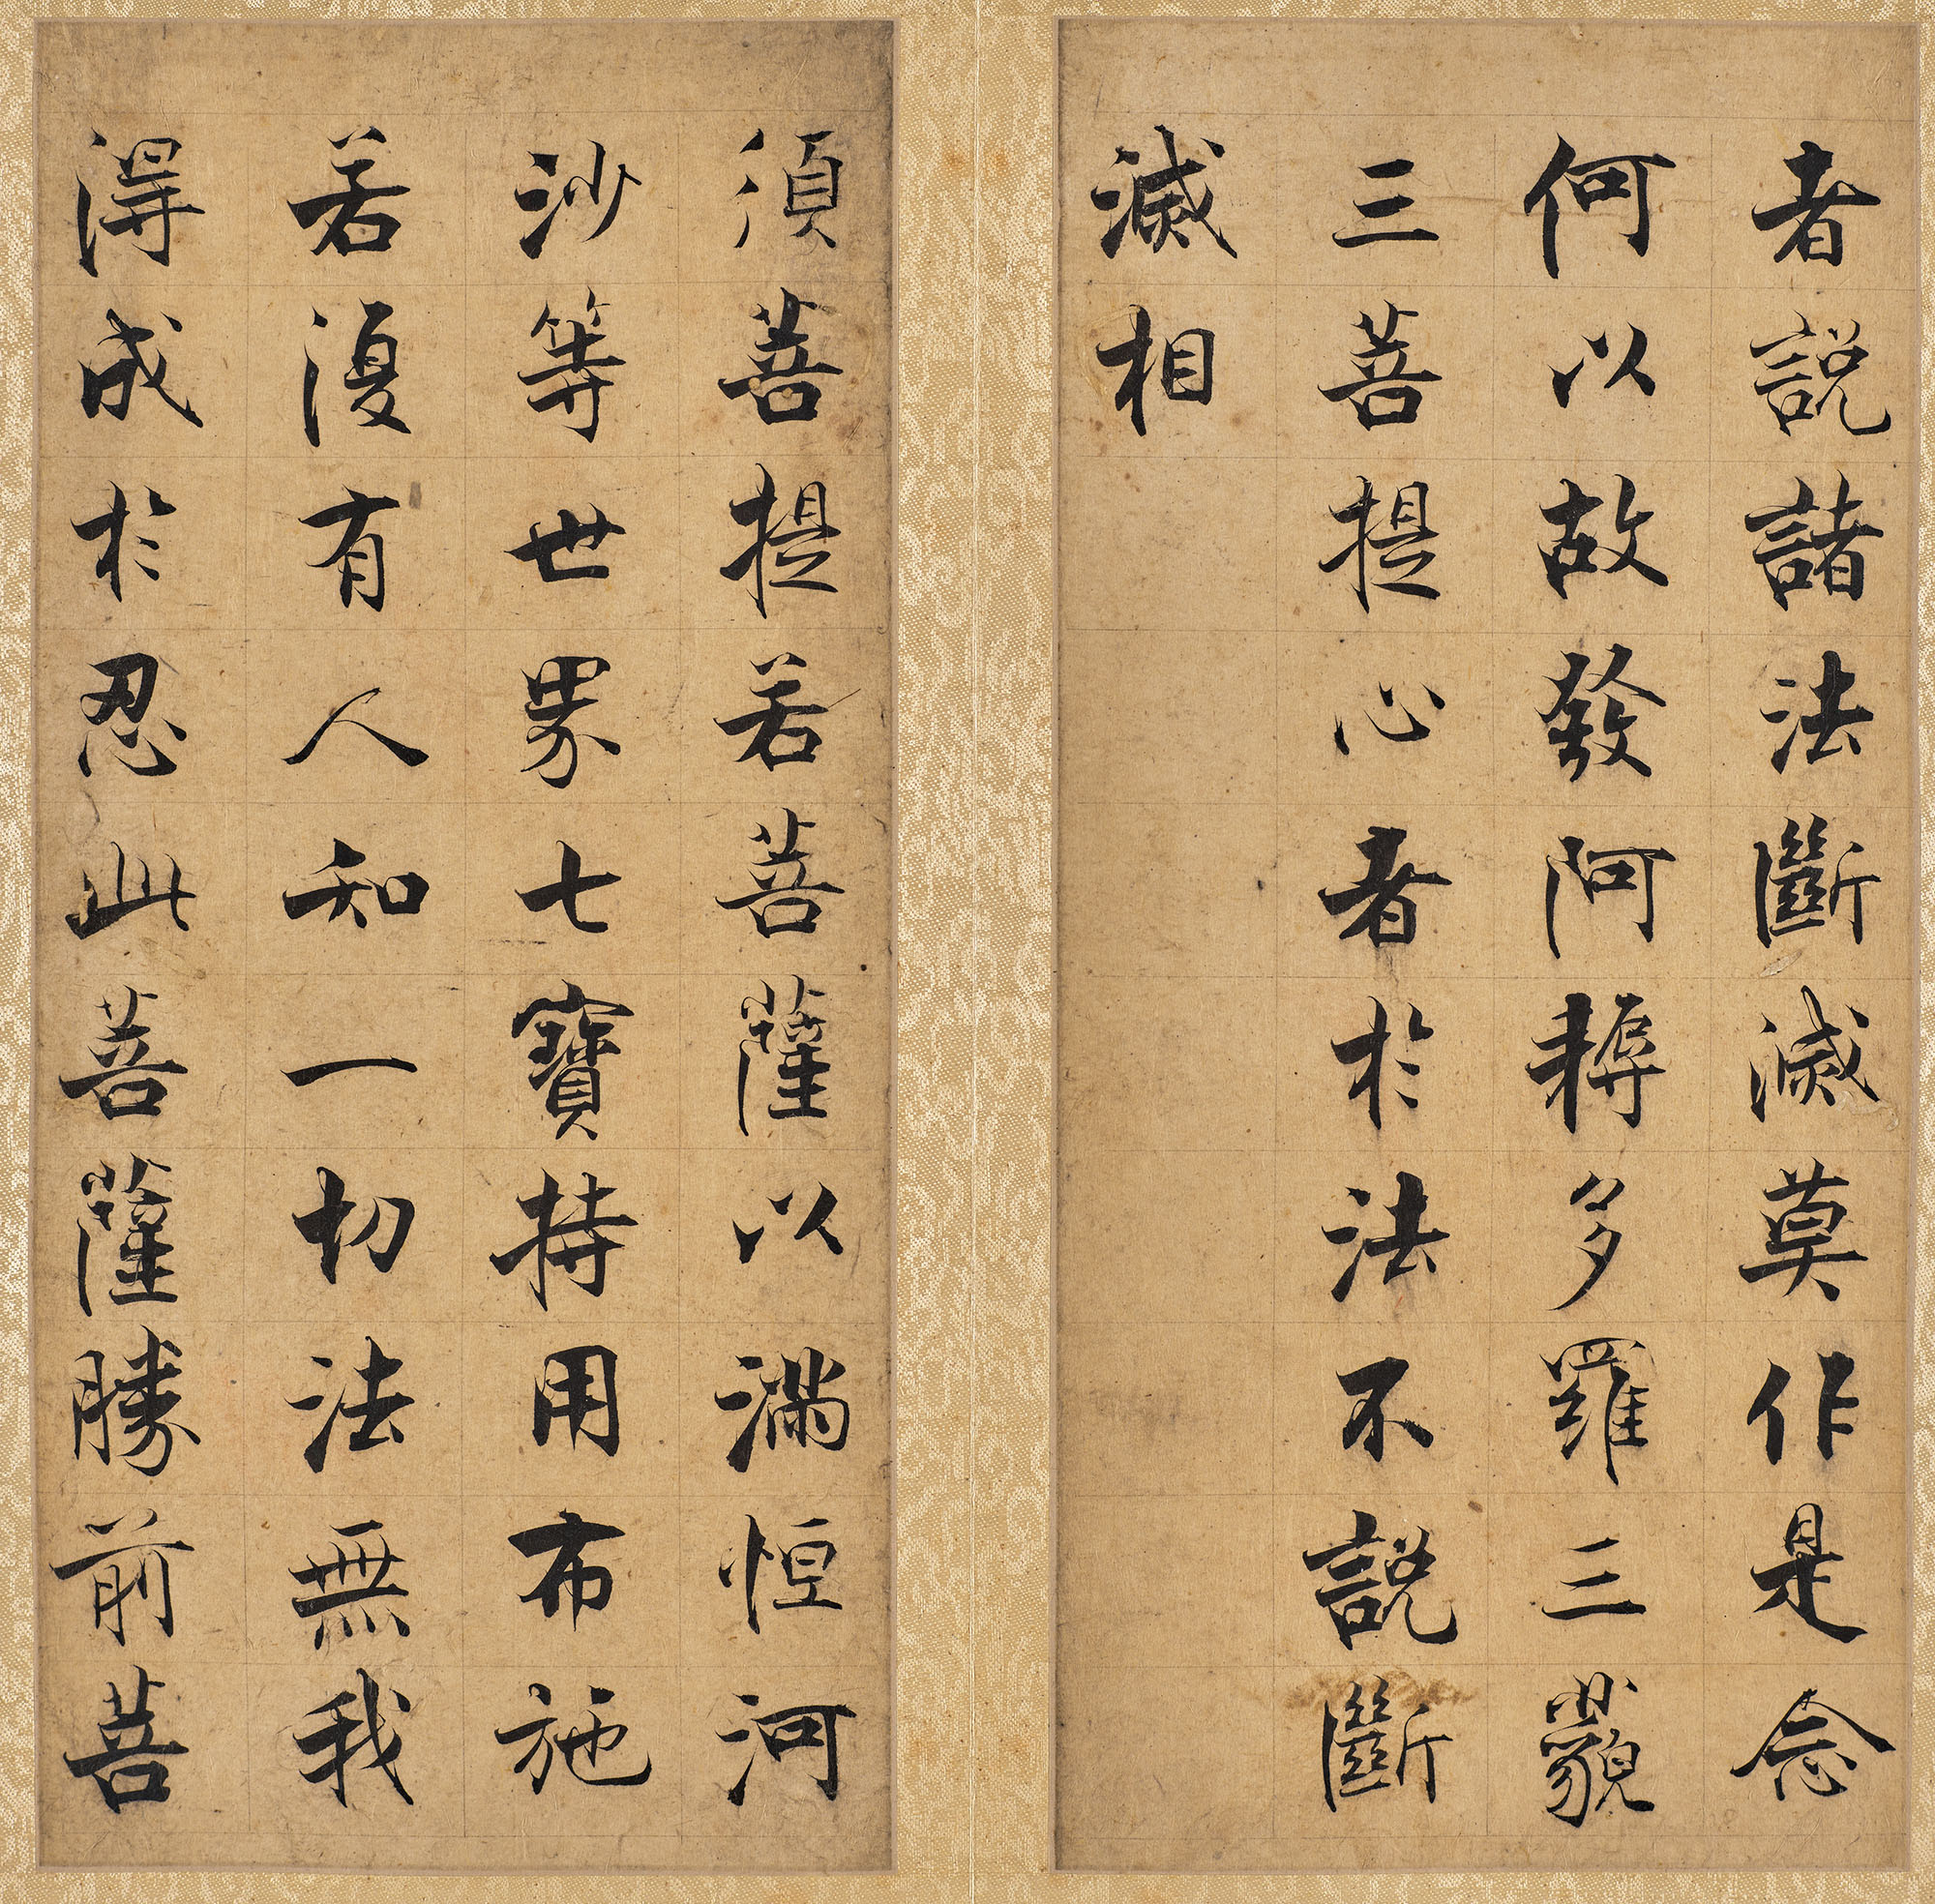 者說諸法斷滅莫作是念
何以故發阿耨多羅三藐
三菩提心者於法不說斷
滅相
須菩提若菩薩以滿恒河
沙等世界七寶持用布施
若復有人知一切法無我
得成於忍此菩薩勝前菩